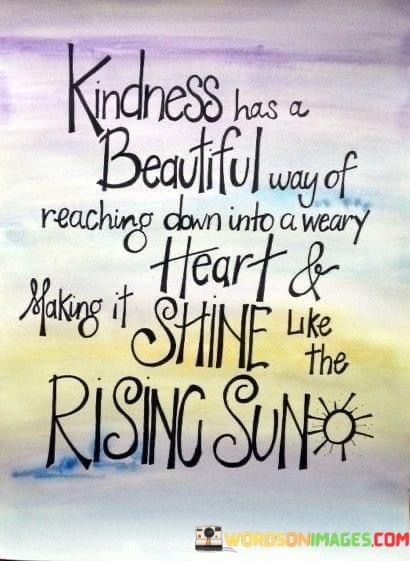 Kindness has a
Beautiful way of
reaching down into a weary
Heart &
Making it SHINE Like
the
RiSING SUN
WORDSONIMAGES.COM